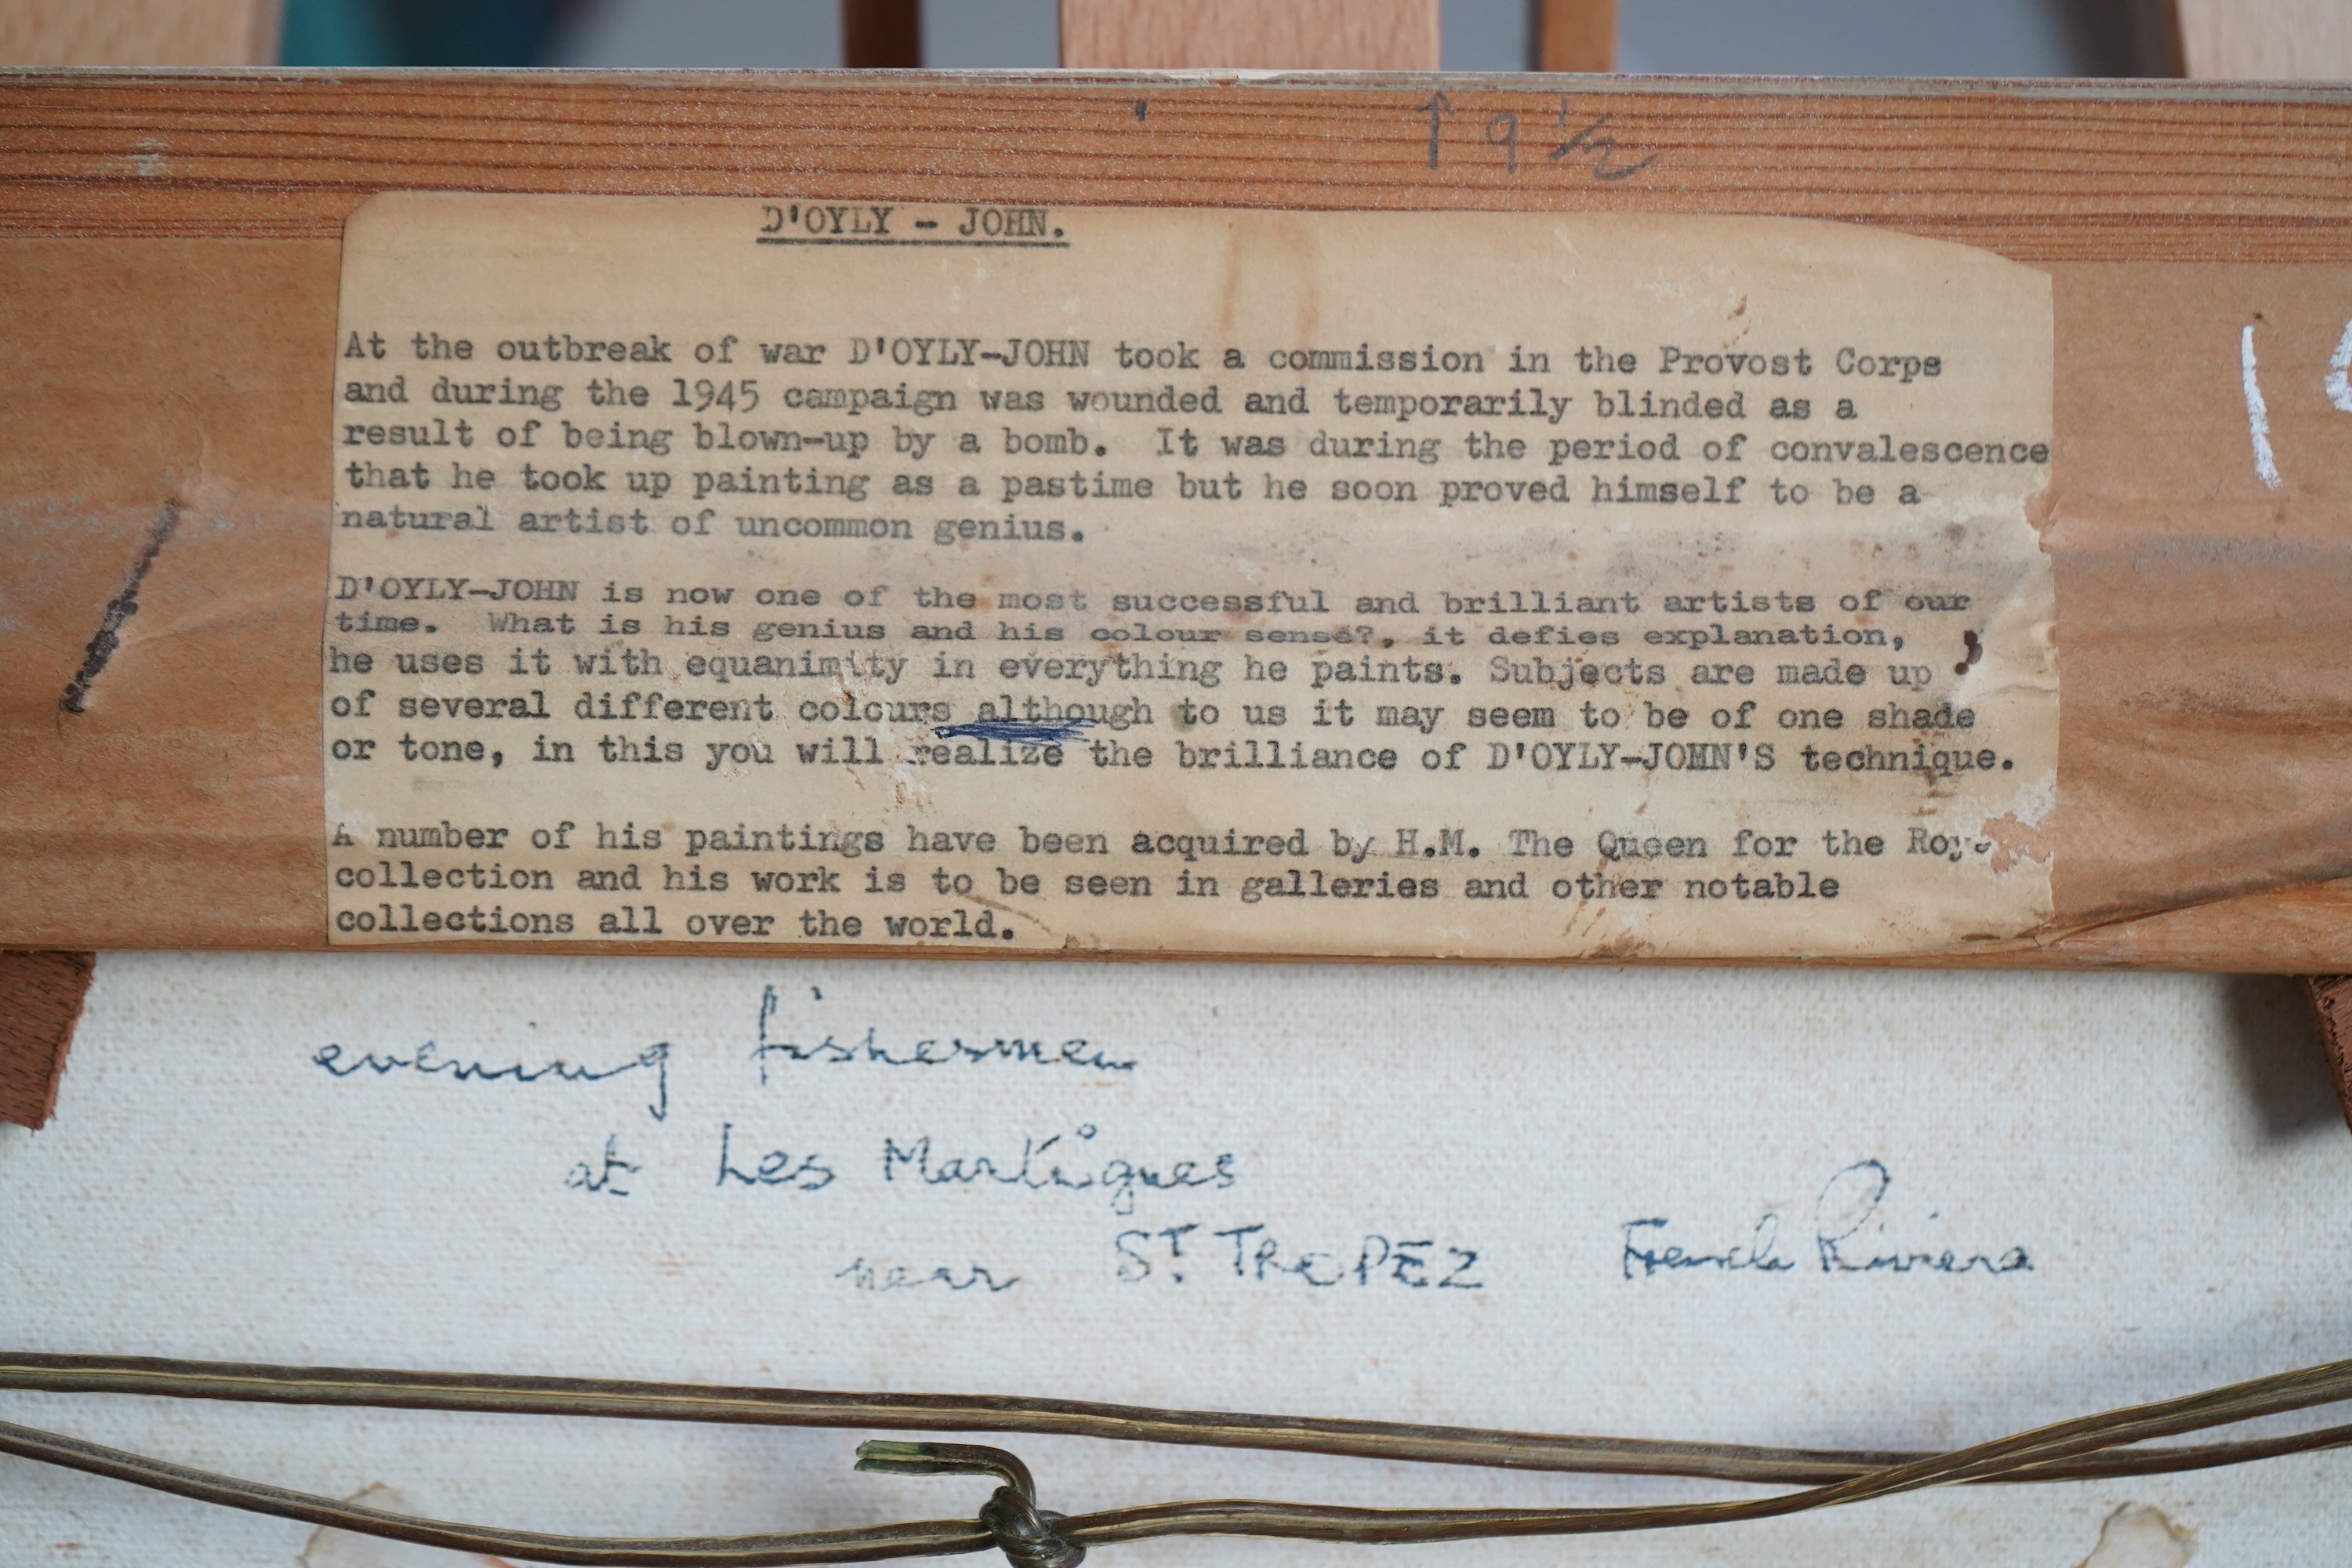 ↑ 9 1/2
D'OYLY - JOHN.
At the outbreak of war D'OYLY-JOHN took a commission in the Provost Corps
and during the 1945 campaign was wounded and temporarily blinded as a
result of being blown-up by a bomb.  It was during the period of convalescence
that he took up painting as a pastime but he soon proved himself to be a
natural artist of uncommon genius.
D'OYLY-JOHN is now one of the most successful and brilliant artists of our
time.  What is his genius and his colour sense?, it defies explanation,
he uses it with equanimity in everything he paints. Subjects are made up
of several different colours although to us it may seem to be of one shade
or tone, in this you will realize the brilliance of D'OYLY-JOHN'S technique.
A number of his paintings have been acquired by H.M. The Queen for the
collection and his work is to be seen in galleries and other notable
collections all over the world.
evening fishermen
at Les Martigues
near ST. TROPEZ French Riviera